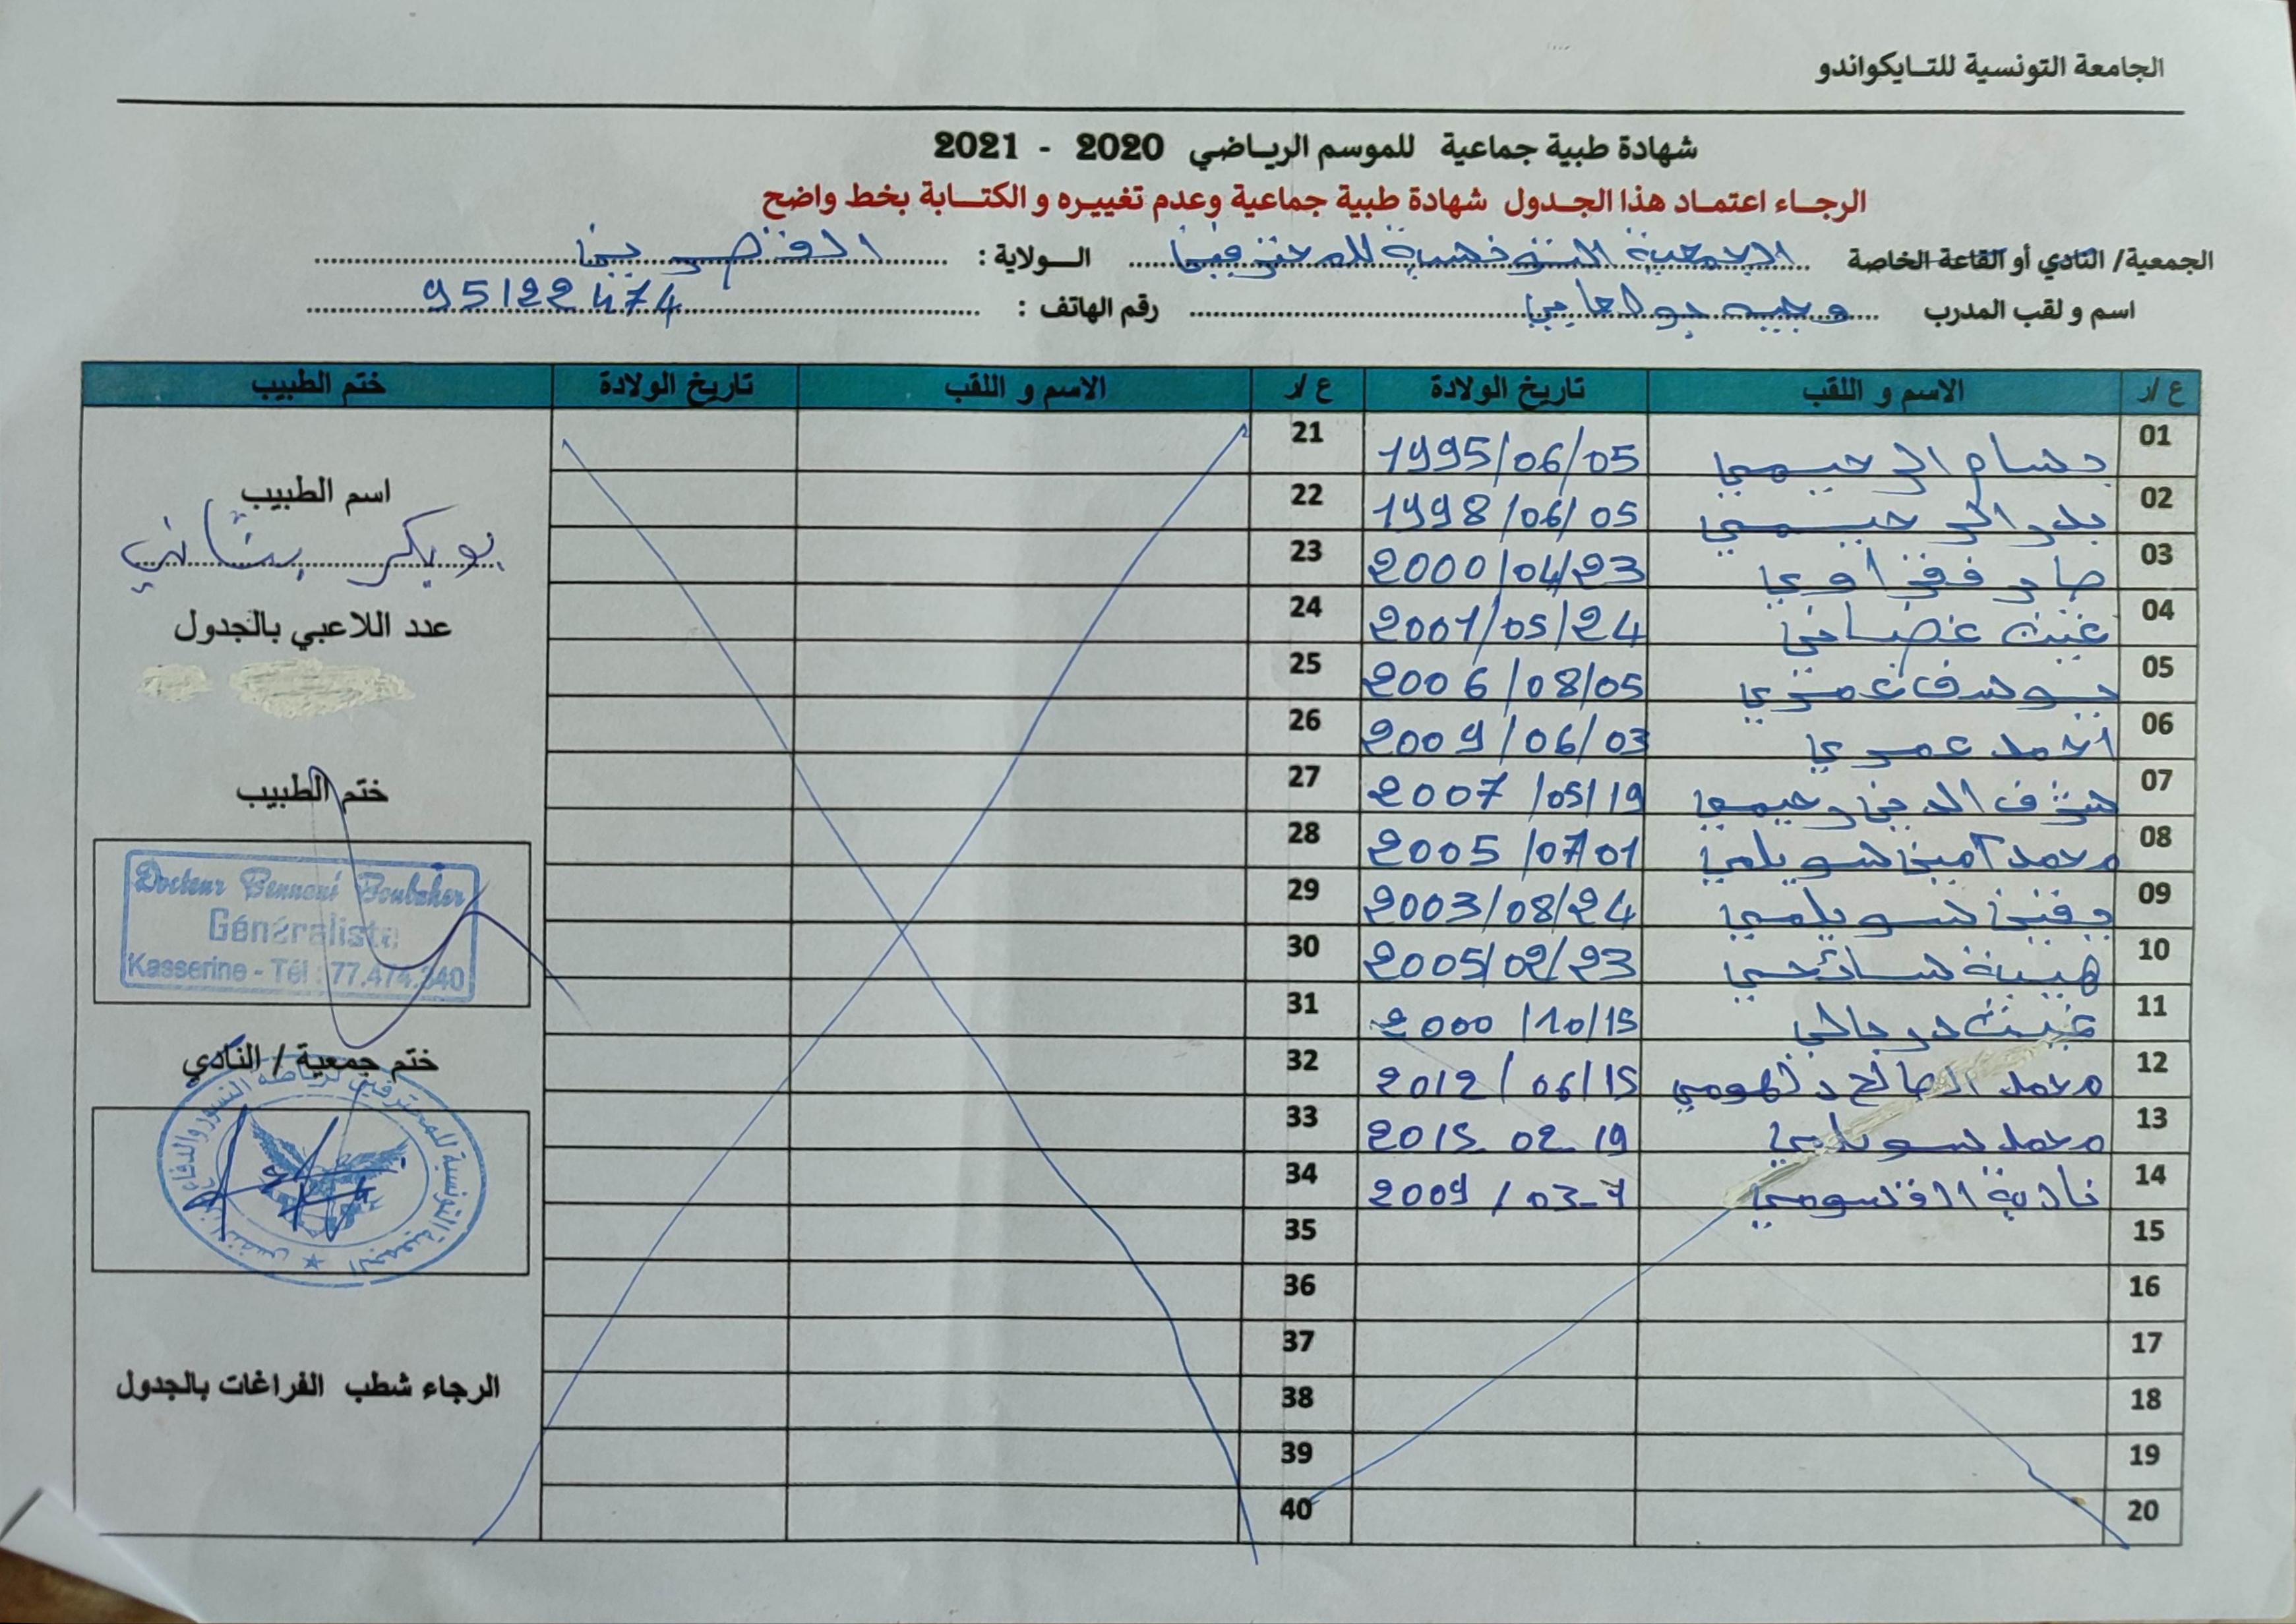 الجامعة التونسية للتـايكواندو
شهادة طبية جماعية للموسم الرياضي 2020 - 2021
الرجاء اعتماد هذا الجدول شهادة طبية جماعية وعدم تغييره و الكتابة بخط واضح
الجمعية/ النادي أو القاعة الخاصة الجمعية التونسية للمحترفين الـولاية : القصرين
اسم و لقب المدرب وجيه بولعابي رقم الهاتف : 95122474
ع /ر الاسم و اللقب تاريخ الولادة ع /ر الاسم و اللقب تاريخ الولادة ختم الطبيب
01 بسام الرحيمي 1995/06/05 21
02 بدر الرحيمي 1998/06/05 22
اسم الطبيب
03 2000/04/23 23
بوبكر بناني
04 غيث 2001/05/24 24
عدد اللاعبي بالجدول
05 يوسف عمري 2006/08/05 25
06 أحمد عمري 2009/06/03 26
07 شرف الدين رحيمي 2007/05/19 27
ختم الطبيب
08 محمد أمين سويلمي 2005/07/01 28
09 يقين سويلمي 2003/08/24 29
10 هيبة سائحي 2005/02/23 30
Docteur Bennani Boubaker
Généraliste
Kasserine - Tél : 77.474.340
11 غيث 2000/10/15 31
ختم جمعية / النادي
12 محمد الصالح دلهومي 2012/06/15 32
13 محمد سويلمي 2015 02 19 33
14 نادية القسومي 2009 / 03-7 34
15 35
16 36
17 37
18 38
الرجاء شطب الفراغات بالجدول
19 39
20 40